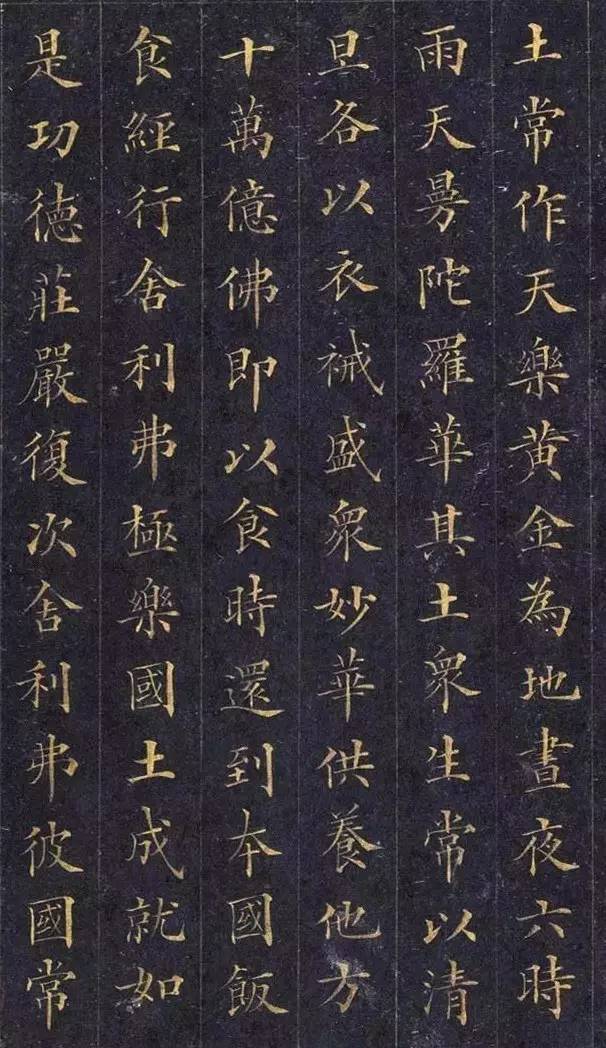 土常作天樂黄金為地晝夜六時
雨天曼陀羅華其土衆生常以清
旦各以衣裓盛衆妙華供養他方
十萬億佛即以食時還到本國飯
食經行舍利弗極樂國土成就如
是功德莊嚴復次舍利弗彼國常